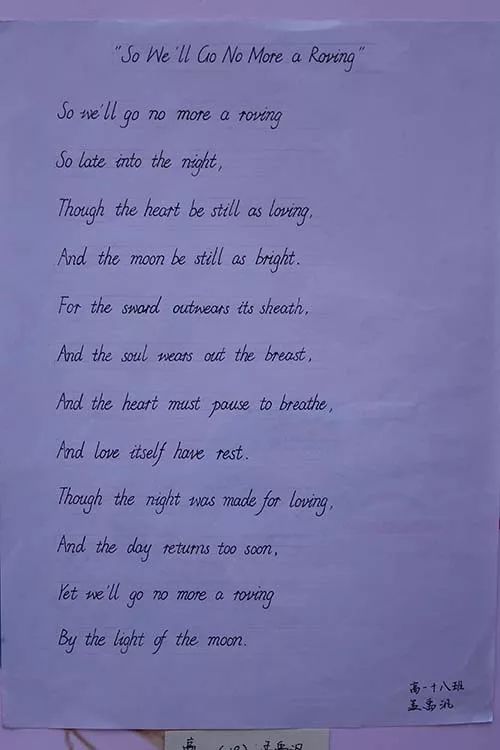 "So We'll Go No More a Roving"
So we'll go no more a roving
So late into the night,
Though the heart be still as loving,
And the moon be still as bright.
For the sword outwears its sheath,
And the soul wears out the breast,
And the heart must pause to breathe,
And love itself have rest.
Though the night was made for loving,
And the day returns too soon,
Yet we'll go no more a roving
By the light of the moon.
高一十八班
孟禹汎